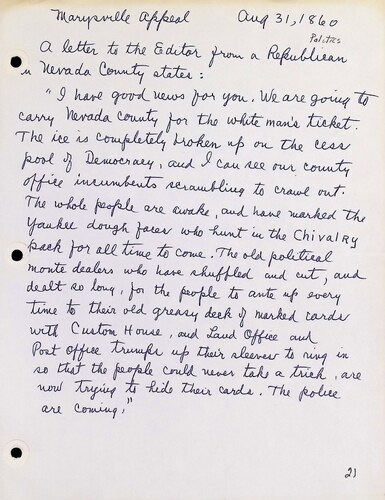 Marysville Appeal Aug 31, 1860
Politics
A letter to the Editor from a Republican
in Nevada County states:
"I have good news for you. We are going to
carry Nevada County for the white man's ticket.
The ice is completely broken up on the cess
pool of Democracy, and I can see our county
office incumbents scrambling to crawl out.
The whole people are awake, and have marked the
Yankee dough faces who hunt in the Chivalry
pack for all time to come. The old political
monte dealers who have shuffled and cut, and
dealt so long, for the people to ante up every
time to their old greasy deck of marked cards
with Custom House, and Land Office and
Post Office trumps up their sleeves to ring in
so that the people could never take a trick, are
now trying to hide their cards. The police
are coming."
21